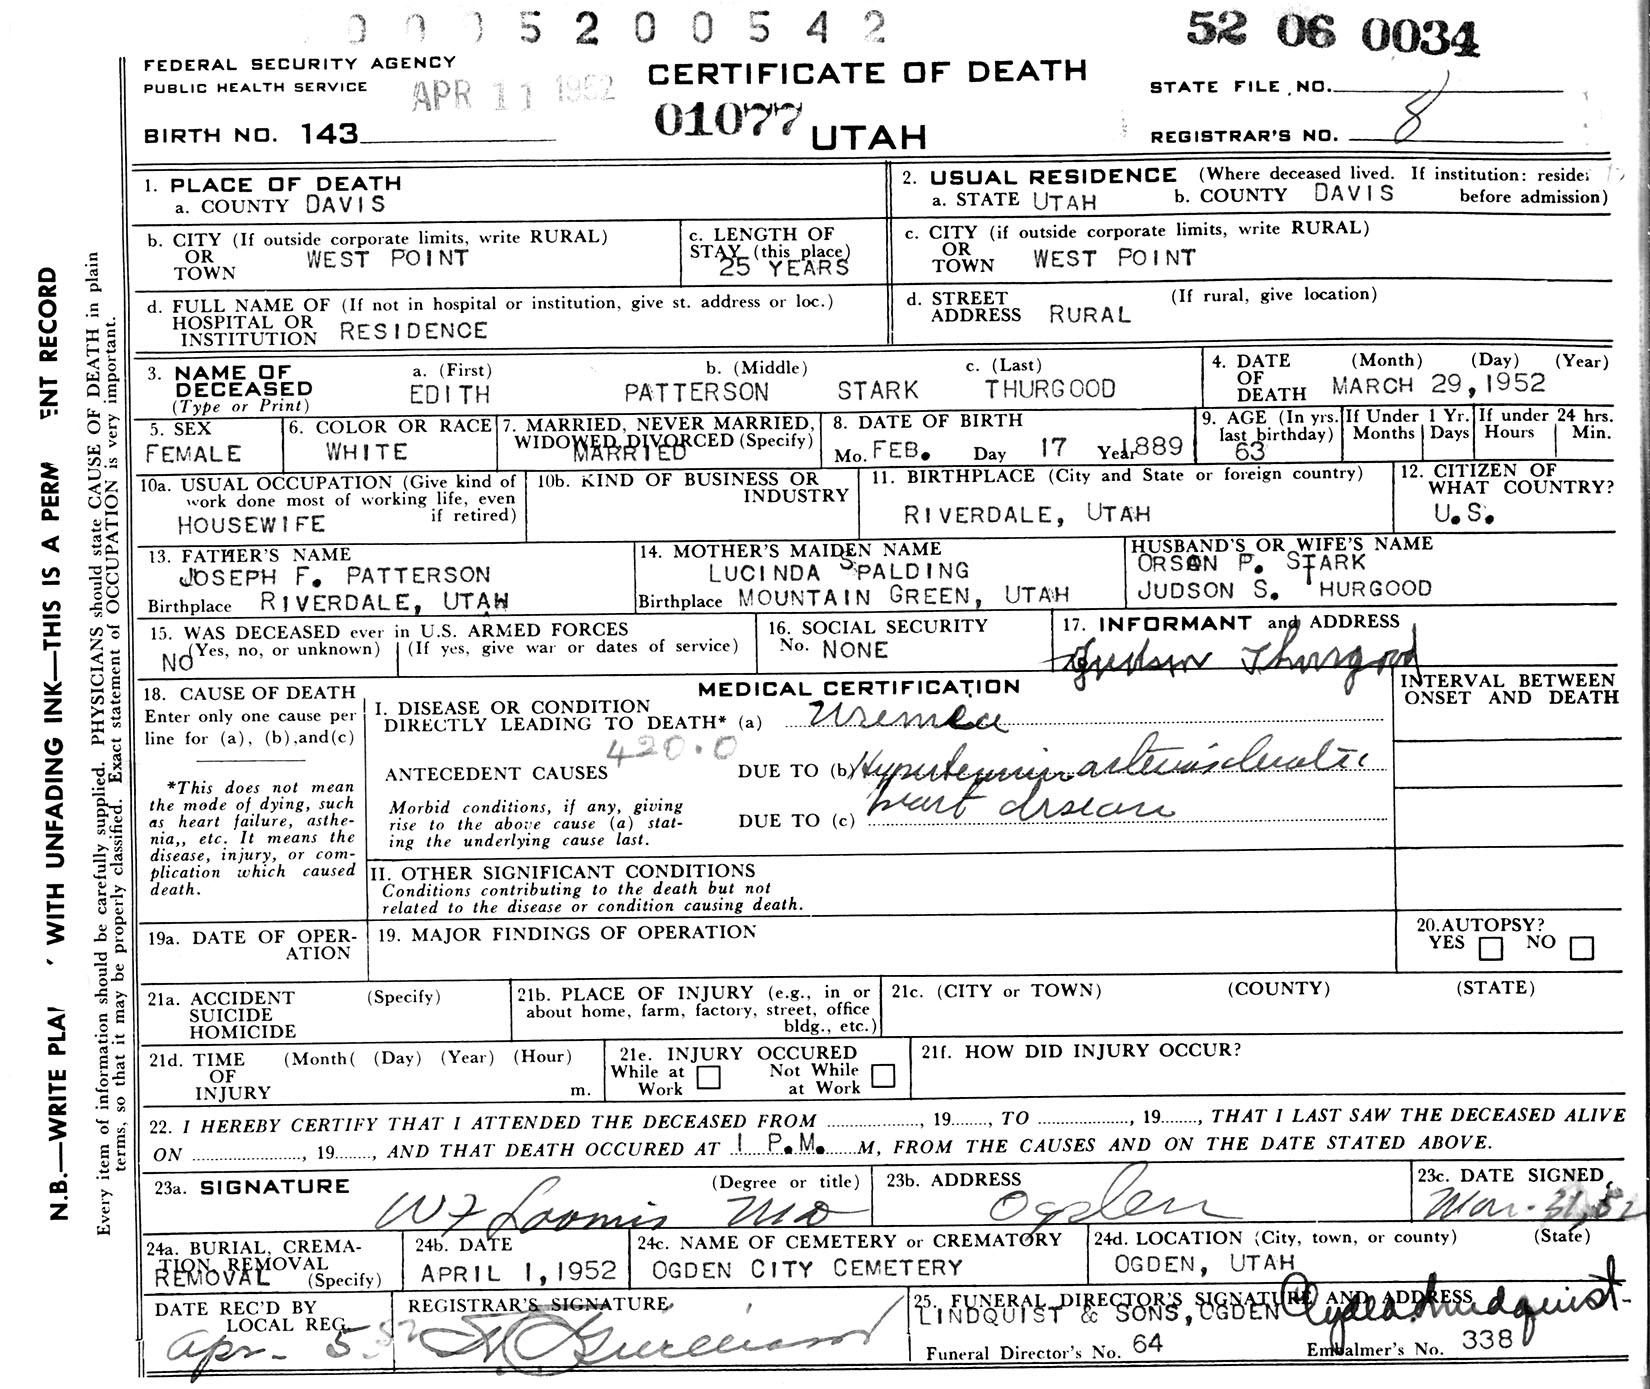 0 0 0 5 2 0 0 5 4 2
52 06 0034
FEDERAL SECURITY AGENCY
PUBLIC HEALTH SERVICE
APR 11 1952
CERTIFICATE OF DEATH
STATE FILE NO.
BIRTH NO. 143
01077
UTAH
REGISTRAR'S NO. 8
1. PLACE OF DEATH
a. COUNTY DAVIS
2. USUAL RESIDENCE (Where deceased lived. If institution:
a. STATE UTAH b. COUNTY DAVIS before admission)
b. CITY (If outside corporate limits, write RURAL)
OR
TOWN WEST POINT
c. LENGTH OF
STAY (this place)
25 YEARS
c. CITY (if outside corporate limits, write RURAL)
OR
TOWN WEST POINT
d. FULL NAME OF (If not in hospital or institution, give st. address or loc.)
HOSPITAL OR
INSTITUTION RESIDENCE
d. STREET (If rural, give location)
ADDRESS RURAL
3. NAME OF
DECEASED
(Type or Print)
a. (First) b. (Middle) c. (Last)
EDITH PATTERSON STARK THURGOOD
4. DATE (Month) (Day) (Year)
OF
DEATH MARCH 29, 1952
5. SEX
FEMALE
6. COLOR OR RACE
WHITE
7. MARRIED, NEVER MARRIED,
WIDOWED DIVORCED (Specify)
MARRIED
8. DATE OF BIRTH
Mo. FEB. Day 17 Year 1889
9. AGE (In yrs.
last birthday)
63
If Under 1 Yr.
Months Days
If under 24 hrs.
Hours Min.
10a. USUAL OCCUPATION (Give kind of
work done most of working life, even
if retired)
HOUSEWIFE
10b. KIND OF BUSINESS OR
INDUSTRY
11. BIRTHPLACE (City and State or foreign country)
RIVERDALE, UTAH
12. CITIZEN OF
WHAT COUNTRY?
U.S.
13. FATHER'S NAME
JOSEPH F. PATTERSON
Birthplace RIVERDALE, UTAH
14. MOTHER'S MAIDEN NAME
LUCINDA SPALDING
Birthplace MOUNTAIN GREEN, UTAH
HUSBAND'S OR WIFE'S NAME
ORSON P. STARK
JUDSON S. THURGOOD
15. WAS DECEASED ever in U.S. ARMED FORCES
(Yes, no, or unknown) (If yes, give war or dates of service)
NO
16. SOCIAL SECURITY
No. NONE
17. INFORMANT and ADDRESS
Judson Thurgood
18. CAUSE OF DEATH
Enter only one cause per
line for (a), (b),and(c)
*This does not mean
the mode of dying, such
as heart failure, asthe-
nia,, etc. It means the
disease, injury, or com-
plication which caused
death.
MEDICAL CERTIFICATION
INTERVAL BETWEEN
ONSET AND DEATH
I. DISEASE OR CONDITION
DIRECTLY LEADING TO DEATH* (a) Uremia
420.0
ANTECEDENT CAUSES DUE TO (b) Hypertensive arteriosclerotic
heart disease
Morbid conditions, if any, giving
rise to the above cause (a) stat-
ing the underlying cause last.
DUE TO (c)
II. OTHER SIGNIFICANT CONDITIONS
Conditions contributing to the death but not
related to the disease or condition causing death.
19a. DATE OF OPER-
ATION
19. MAJOR FINDINGS OF OPERATION
20.AUTOPSY?
YES NO
21a. ACCIDENT (Specify)
SUICIDE
HOMICIDE
21b. PLACE OF INJURY (e.g., in or
about home, farm, factory, street, office
bldg., etc.)
21c. (CITY or TOWN) (COUNTY) (STATE)
21d. TIME (Month( (Day) (Year) (Hour)
OF
INJURY m.
21e. INJURY OCCURED
While at Not While
Work at Work
21f. HOW DID INJURY OCCUR?
22. I HEREBY CERTIFY THAT I ATTENDED THE DECEASED FROM ................, 19......., TO ................, 19......., THAT I LAST SAW THE DECEASED ALIVE
ON ..................., 19......., AND THAT DEATH OCCURED AT 1 P.M. M, FROM THE CAUSES AND ON THE DATE STATED ABOVE.
23a. SIGNATURE (Degree or title)
W F Loomis MD
23b. ADDRESS
Ogden
23c. DATE SIGNED
Mar. 31, 52
24a. BURIAL, CREMA-
TION, REMOVAL
REMOVAL (Specify)
24b. DATE
APRIL 1, 1952
24c. NAME OF CEMETERY or CREMATORY
OGDEN CITY CEMETERY
24d. LOCATION (City, town, or county) (State)
OGDEN, UTAH
DATE REC'D BY
LOCAL REG.
Apr. 5 52
REGISTRAR'S SIGNATURE
25. FUNERAL DIRECTOR'S SIGNATURE AND ADDRESS
LINDQUIST & SONS, OGDEN Clyde Lindquist
Funeral Director's No. 64 Embalmer's No. 338
N.B.—WRITE PLAI WITH UNFADING INK—THIS IS A PERM ENT RECORD
Every item of information should be carefully supplied. PHYSICIANS should state CAUSE OF DEATH in plain
terms, so that it may be properly classified. Exact statement of OCCUPATION is very important.